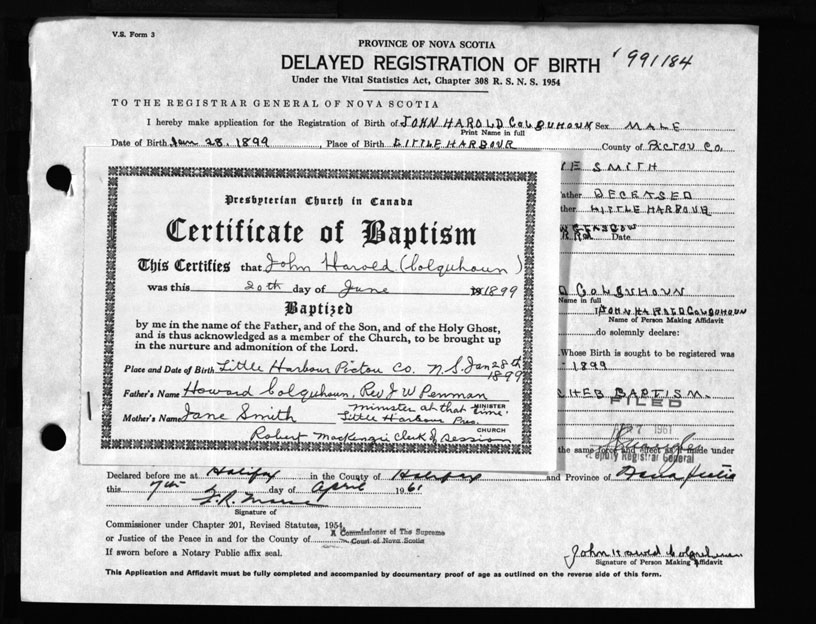 V.S. Form 3
PROVINCE OF NOVA SCOTIA
DELAYED REGISTRATION OF BIRTH
991184
Under the Vital Statistics Act, Chapter 308 R. S. N. S. 1954
TO THE REGISTRAR GENERAL OF NOVA SCOTIA
I hereby make application for the Registration of Birth of JOHN HAROLD COLQUHOUN Sex MALE
Print Name in full
Date of Birth Jan 28. 1899 Place of Birth LITTLE HARBOUR County of PICTOU CO.
IE SMITH
ather DECEASED
ther LITTLE HARBOUR
Date
Presbyterian Church in Canada
Certificate of Baptism
This Certifies that John Harold (Colquhoun)
was this 20th day of June 1899
Baptized
by me in the name of the Father, and of the Son, and of the Holy Ghost,
and is thus acknowledged as a member of the Church, to be brought up
in the nurture and admonition of the Lord.
Place and Date of Birth Little Harbour Pictou Co. N.S. Jan 28th
1899
Father's Name Howard Colquhoun, Rev J W Penman
MINISTER
Mother's Name Jane Smith minister at that time,
Little Harbour Pres.
CHURCH
Robert MacKenzie Clerk of Session
D COLQUHOUN
Name in full
JOHN HAROLD COLQUHOUN
Name of Person Making Affidavit
do solemnly declare:
Whose Birth is sought to be registered was
1899
BAPTISM.
FILED
7 1961
the same force and effect as if made under
Deputy Registrar General
Declared before me at Halifax in the County of Halifax and Province of Nova Scotia
this 7th day of April 1961
Signature of
Commissioner under Chapter 201, Revised Statutes, 1954,
or Justice of the Peace in and for the County of
A Commissioner of The Supreme
Court of Nova Scotia
If sworn before a Notary Public affix seal.
John Harold Colquhoun
Signature of Person Making Affidavit
This Application and Affidavit must be fully completed and accompanied by documentary proof of age as outlined on the reverse side of this form.